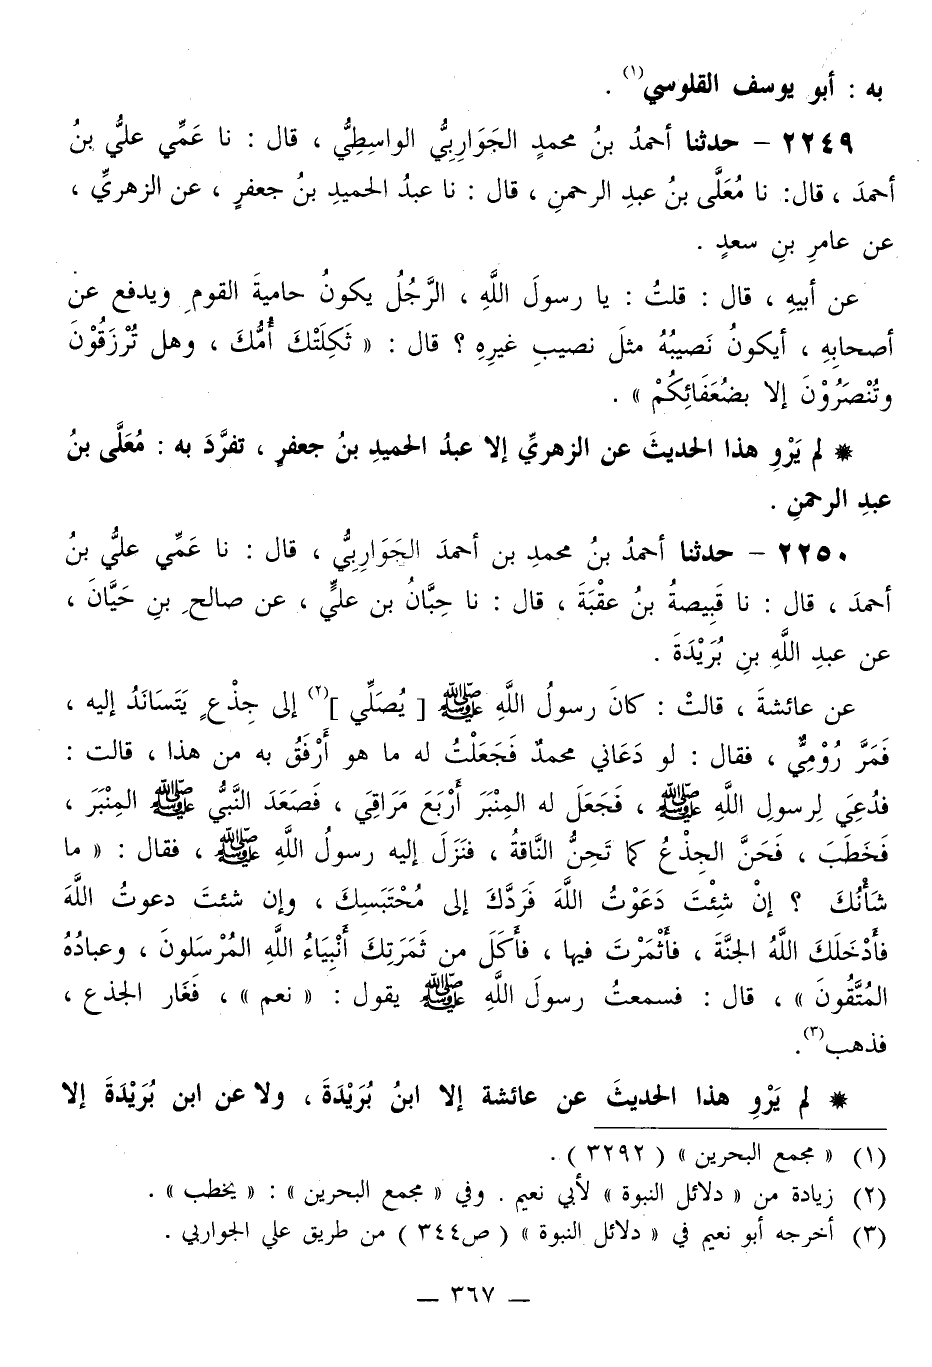 به : أبو يوسف القلوسي(١) .
٢٢٤٩ – حدثنا أحمدُ بنُ محمدٍ الجَوَارِبيُّ الواسِطِيُّ ، قال : نا عَمِّي عليُّ بنُ
أحمدَ ، قال: نا مُعَلَّى بنُ عبدِ الرحمنِ ، قال : نا عبدُ الحميدِ بنُ جعفرٍ ، عن الزهريِّ ،
عن عامرِ بنِ سعدٍ .
عن أبيهِ ، قال : قلتُ : يا رسولَ اللَّهِ ، الرَّجُلُ يكونُ حاميةَ القومِ ويدفع عن
أصحابِهِ ، أيكونُ نَصيبُهُ مثلَ نصيبِ غيرِهِ ؟ قال : « ثَكِلَتْكَ أُمُّكَ ، وهل تُرْزَقُوْنَ
وتُنْصَرُوْنَ إلا بضُعَفَائِكُمْ » .
* لم يَرْوِ هذا الحديثَ عن الزهريِّ إلا عبدُ الحميدِ بنُ جعفرٍ ، تفرَّدَ به : مُعَلَّى بنُ
عبدِ الرحمنِ .
٢٢٥٠ – حدثنا أحمدُ بنُ محمدِ بن أحمدَ الجَوَارِبيُّ ، قال : نا عَمِّي عليُّ بنُ
أحمدَ ، قال : نا قَبِيصةُ بنُ عقْبَةَ ، قال : نا حِبَّانُ بن عليٍّ ، عن صالحِ بنِ حَيَّانَ ،
عن عبدِ اللَّهِ بنِ بُرَيْدَةَ .
عن عائشةَ ، قالتْ : كانَ رسولُ اللَّهِ ﷺ [ يُصَلِّي ](٢) إلى جِذْعٍ يَتَسَانَدُ إليه ،
فَمَرَّ رُوْمِيٌّ ، فقال : لو دَعَاني محمدٌ فَجَعَلْتُ له ما هو أَرْفَقُ به من هذا ، قالت :
فدُعِيَ لِرسولِ اللَّهِ ﷺ ، فَجَعَلَ له المِنْبَرَ أَرْبَعَ مَرَاقِي ، فَصَعَدَ النَّبيُّ ﷺ المِنْبَرَ ،
فَخَطَبَ ، فَحَنَّ الجِذْعُ كما تَحِنُّ النَّاقةُ ، فنَزَلَ إليه رسولُ اللَّهِ ﷺ ، فقال : « ما
شَأْنُكَ ؟ إنْ شِئْتَ دَعَوْتُ اللَّهَ فَرَدَّكَ إلى مُحْتَبَسِكَ ، وإن شئتَ دعوتُ اللَّهَ
فأَدْخَلَكَ اللَّهُ الجنَّةَ ، فأَثْمَرْتَ فيها ، فأَكَلَ من ثَمَرَتِكَ أَنْبِيَاءُ اللَّهِ المُرْسَلونَ ، وعبادُهُ
المُتَّقُونَ » ، قال : فسمعتُ رسولَ اللَّهِ ﷺ يقول : « نعم » ، فَغَار الجذع ،
فذهب(٣).
* لم يَرْوِ هذا الحديثَ عن عائشة إلا ابنُ بُرَيْدَةَ ، ولا عن ابن بُرَيْدَةَ إلا
(١) « مجمع البحرين » ( ٣٢٩٢ ) .
(٢) زيادة من « دلائل النبوة » لأبي نعيم . وفي « مجمع البحرين » : « يخطب » .
(٣) أخرجه أبو نعيم في « دلائل النبوة » ( ص٣٤٤ ) من طريق علي الجواربي .
– ٣٦٧ –